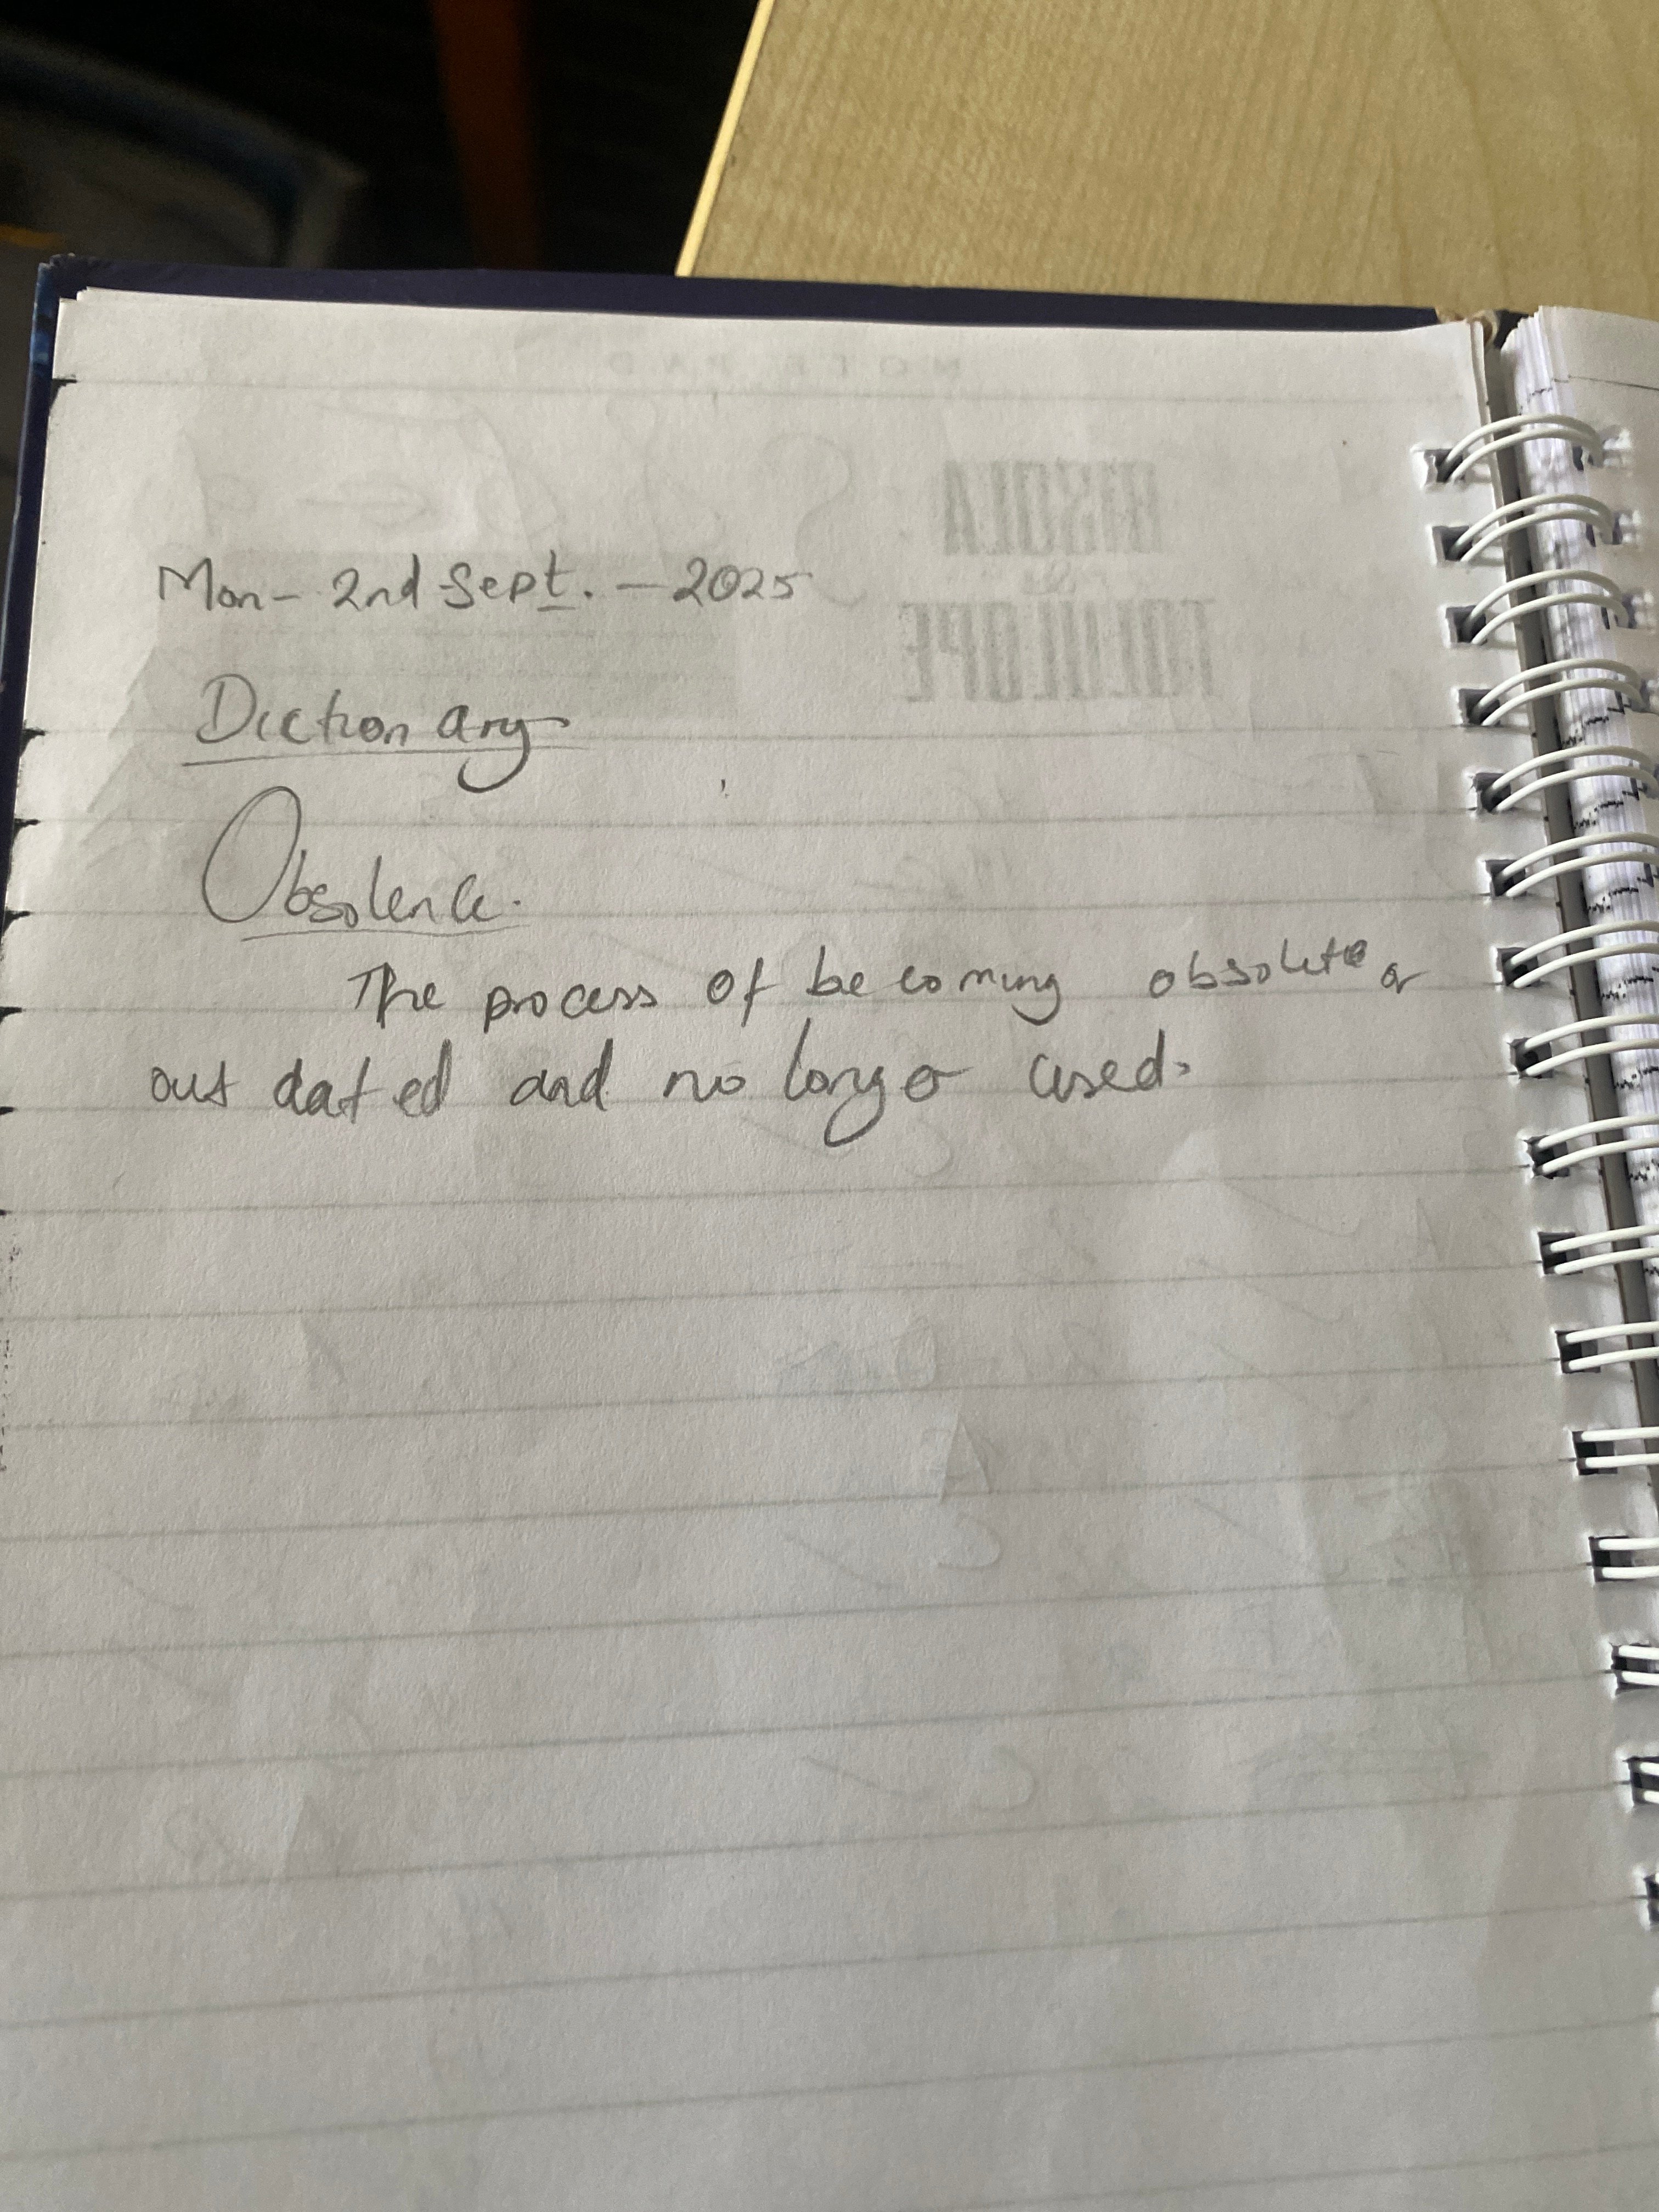 NOTEPAD
BISOLA
&
TOLULOPE
Mon- 2nd Sept. - 2025
Dictionary
Obsolence.
The process of becoming obsolete or
out dated and no longer used.